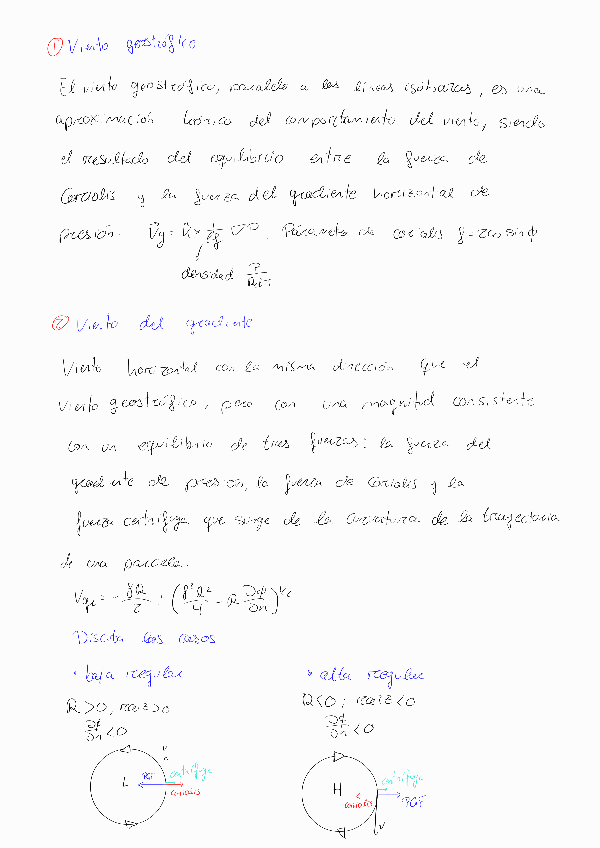 ① Viento geostrófico
El viento geostrófico, paralelo a las líneas isóbaras, es una
aproximación teórica del comportamiento del viento, siendo
el resultado del equilibrio entre la fuerza de
Coriolis y la fuerza del gradiente horizontal de
presión. V̄g = k̂ × 1/ρf ∇P. Parámetro de coriolis f = 2ω sin φ
densidad
② Viento del gradiente
Viento horizontal con la misma dirección que el
viento geostrófico, pero con una magnitud consistente
con un equilibrio de tres fuerzas: la fuerza del
gradiente de presión, la fuerza de Coriolis y la
fuerza centrífuga que surge de la curvatura de la trayectoria
de una parcela.
Vgr = - fR/2 ± (f²R²/4 - R ∂ϕ/∂n)^1/2
Discuta los casos
• baja regular • alta regular
R>0, raiz>0 R<0; raiz<0
∂ϕ/∂n <0 ∂ϕ/∂n <0
V
L PGF centrífuga
coriolis
H centrífuga
coriolis PGF
V